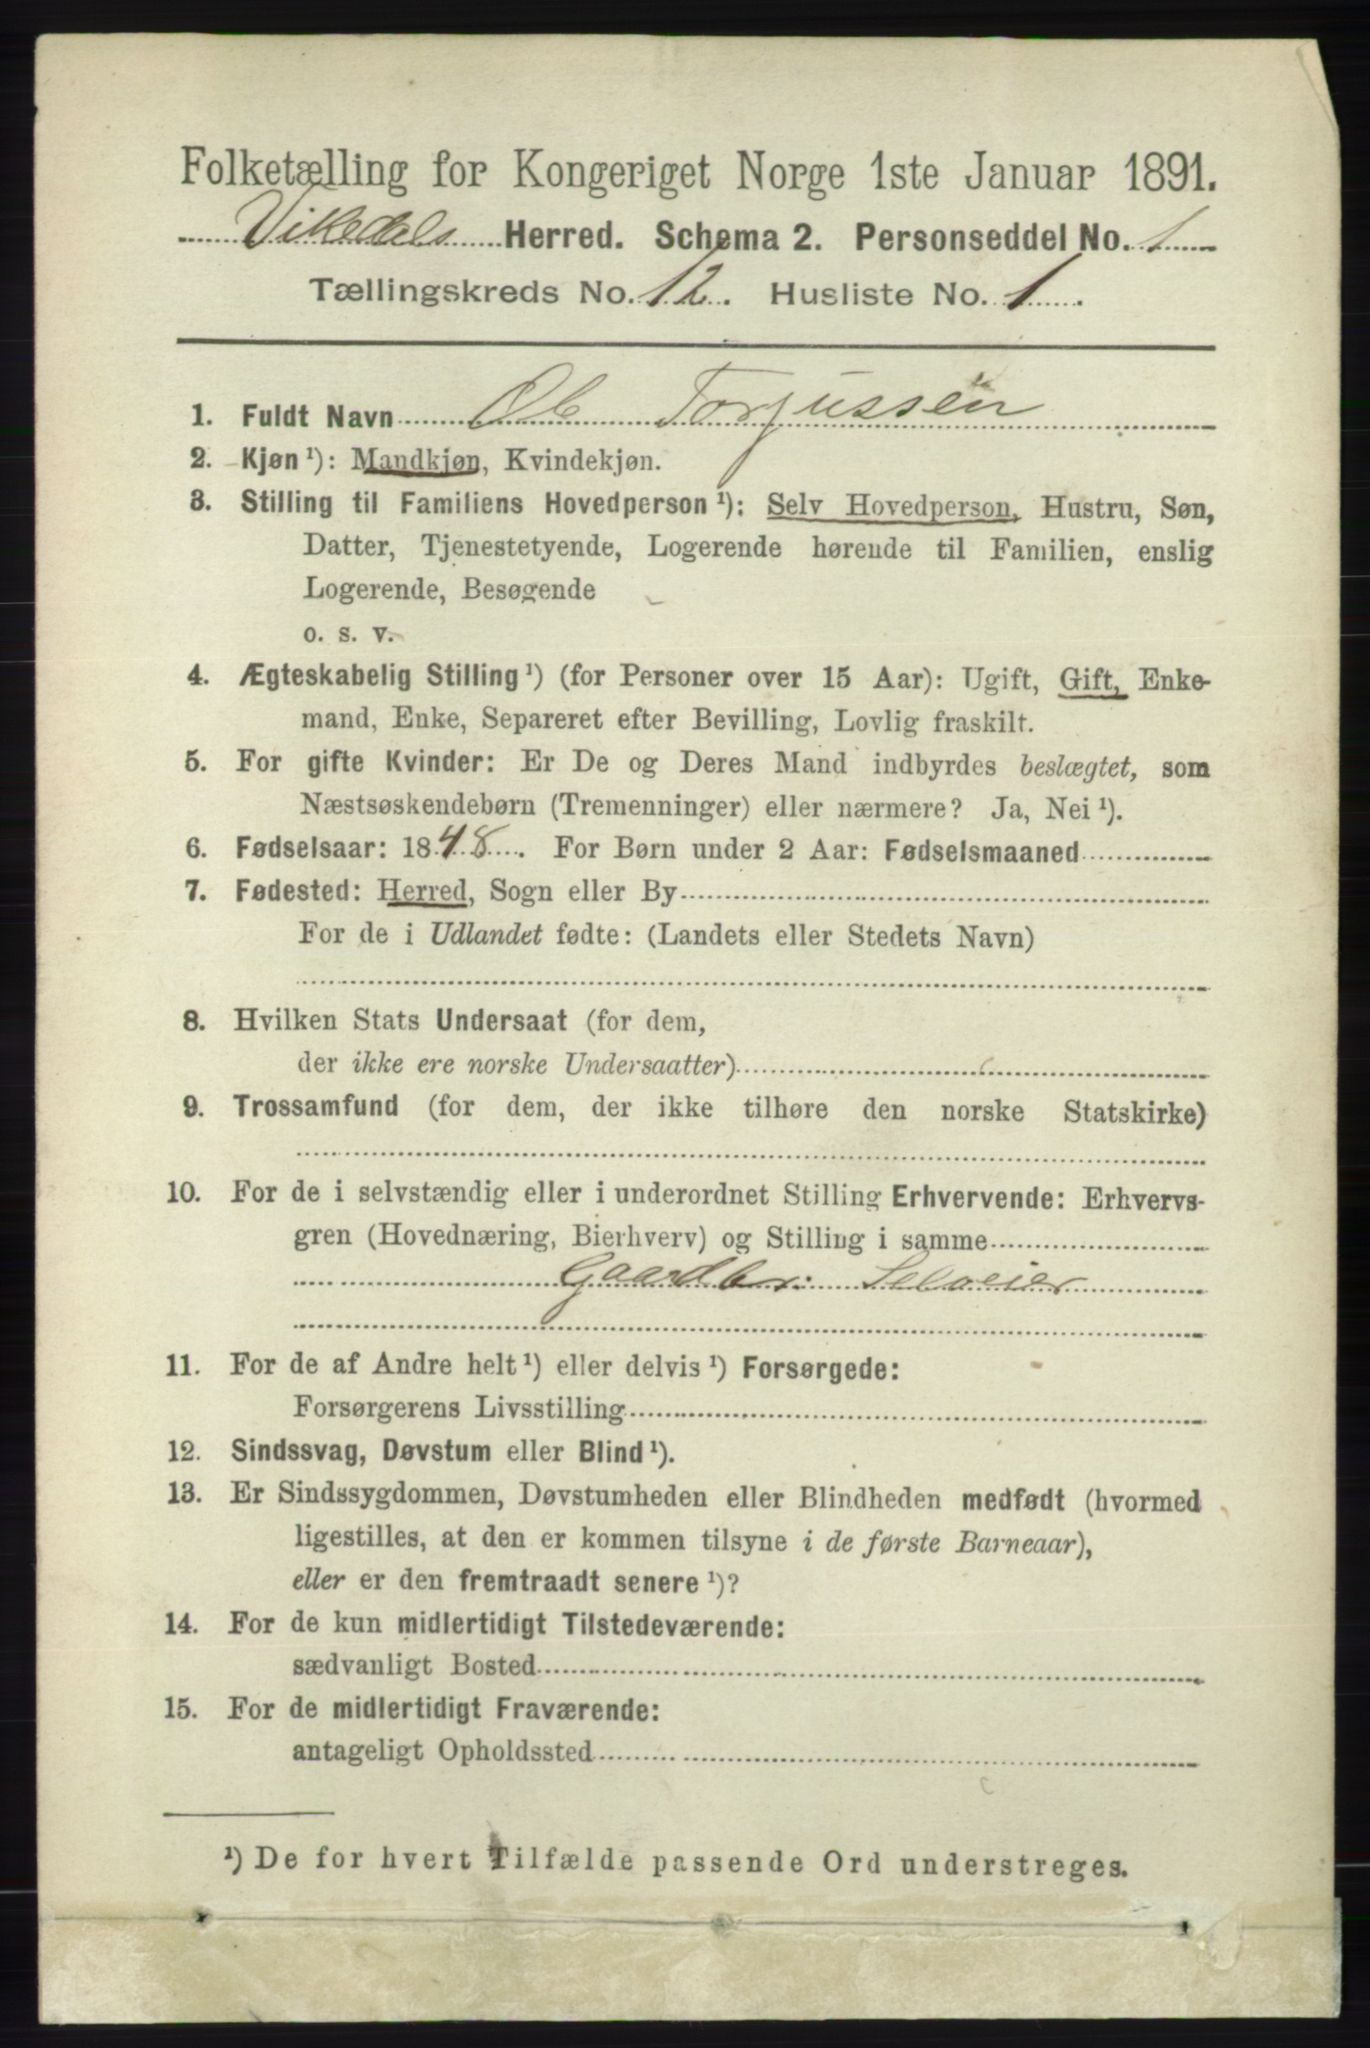 Folketælling for Kongeriget Norge 1ste Januar 1891.
Vikedals Herred. Schema 2. Personseddel No. 1
Tællingskreds No. 12. Husliste No. 1.
1. Fuldt Navn Ole Torjussen
2. Kjøn ¹): Mandkjøn, Kvindekjøn.
3. Stilling til Familiens Hovedperson ¹): Selv Hovedperson, Hustru, Søn,
Datter, Tjenestetyende, Logerende hørende til Familien, enslig
Logerende, Besøgende
o. s. v.
4. Ægteskabelig Stilling ¹) (for Personer over 15 Aar): Ugift, Gift, Enke-
mand, Enke, Separeret efter Bevilling, Lovlig fraskilt.
5. For gifte Kvinder: Er De og Deres Mand indbyrdes beslægtet, som
Næstsøskendebørn (Tremenninger) eller nærmere? Ja, Nei ¹).
6. Fødselsaar: 1848. For Børn under 2 Aar: Fødselsmaaned
7. Fødested: Herred, Sogn eller By
For de i Udlandet fødte: (Landets eller Stedets Navn)
8. Hvilken Stats Undersaat (for dem,
der ikke ere norske Undersaatter)
9. Trossamfund (for dem, der ikke tilhøre den norske Statskirke)
10. For de i selvstændig eller i underordnet Stilling Erhvervende: Erhvervs-
gren (Hovednæring, Bierhverv) og Stilling i samme
Gaardbr: Selveier
11. For de af Andre helt ¹) eller delvis ¹) Forsørgede:
Forsørgerens Livsstilling
12. Sindssvag, Døvstum eller Blind ¹).
13. Er Sindssygdommen, Døvstumheden eller Blindheden medfødt (hvormed
ligestilles, at den er kommen tilsyne i de første Barneaar),
eller er den fremtraadt senere ¹)?
14. For de kun midlertidigt Tilstedeværende:
sædvanligt Bosted
15. For de midlertidigt Fraværende:
antageligt Opholdssted
¹) De for hvert Tilfælde passende Ord understreges.